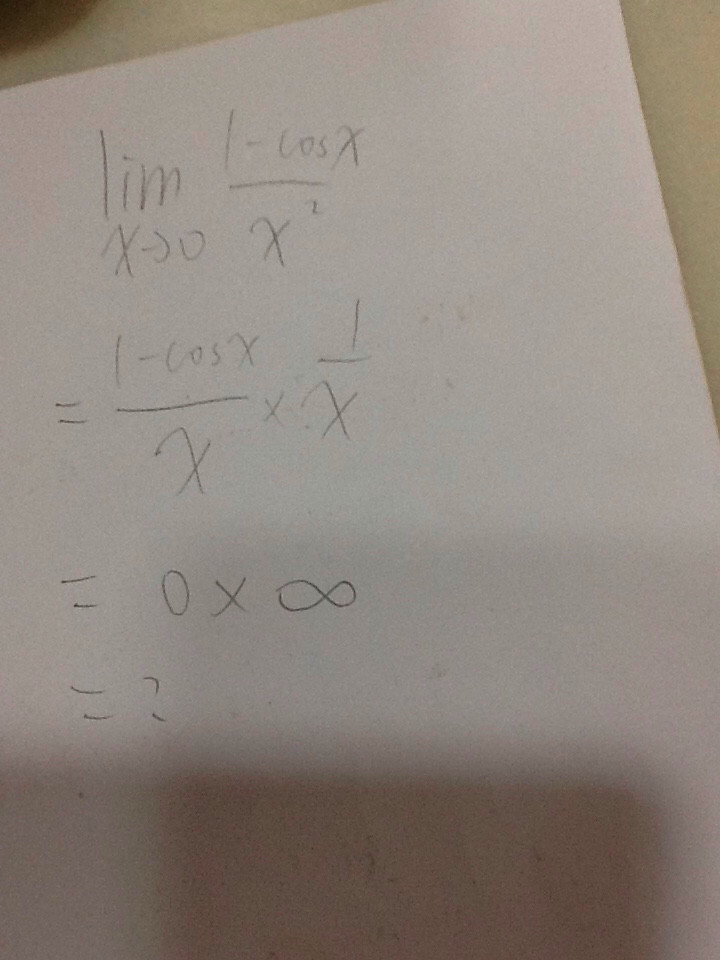 lim 1-cosx
x→0 x²
= 1-cosx / x × 1 / x
= 0 × ∞
= ?